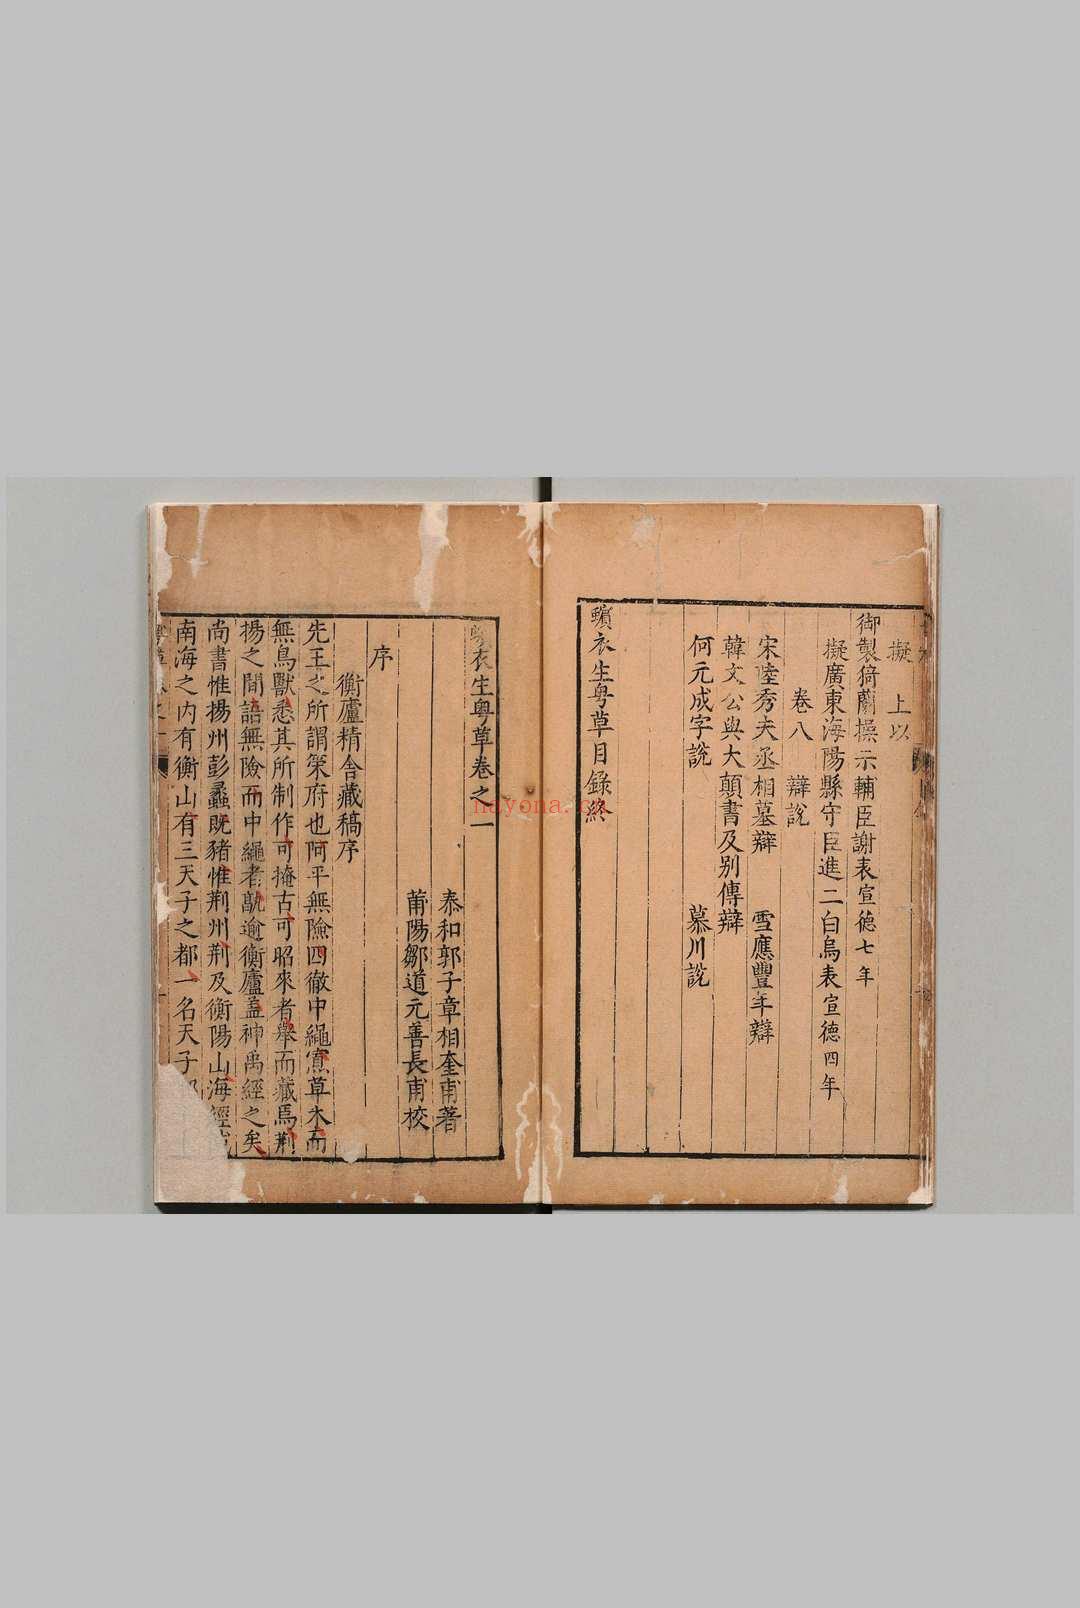 擬　上以
御製猗蘭操示輔臣謝表宣德七年
擬廣東海陽縣守臣進二白烏表宣德四年
卷八　辯說
宋陸秀夫丞相墓辯　雪應豐年辯
韓文公與大顛書及別傳辯
何元成字說　慕川說
蠙衣生粤草目錄終
衣生粤草卷之一
泰和郭子章相奎甫著
莆陽鄒道元善長甫校
序
衡廬精舍藏稿序
先王之所謂策府也阿平無險四徹中繩寡草木而
無鳥獸悉其所制作可掩古可昭來者舉而藏焉荆
揚之間語無險而中繩者孰逾衡廬盖神禹經之矣
尚書惟揚州彭蠡既豬惟荆州荆及衡陽山海經
南海之内有衡山有三天子之都一名天子
nayona.cn